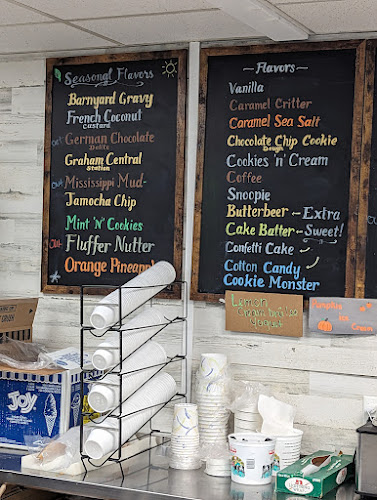 Seasonal Flavors
Barnyard Gravy
French Coconut
Custard
German Chocolate
Graham Central
Station
Mississippi Mud
Jamocha Chip
Mint 'N' Cookies
Fluffer Nutter
Orange Pineapple
Flavors
Vanilla
Caramel Critter
Caramel Sea Salt
Chocolate Chip Cookie
Dough
Cookies 'n' Cream
Coffee
Snoopie
Butterbeer - Extra
Cake Batter - Sweet!
Confetti Cake
Cotton Candy
Cookie Monster
Lemon
Yogurt
Pumpkin
Ice Cream
JOY